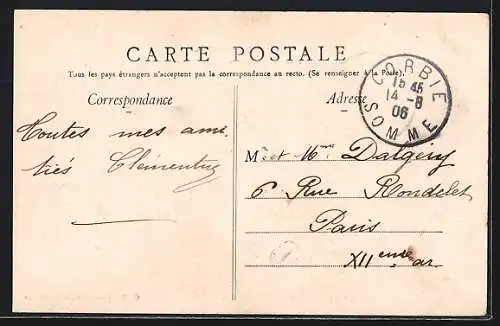 CARTE POSTALE
Tous les pays étrangers n'acceptent pas la correspondance au recto. (Se renseigner à la Poste).
Correspondance
Adresse
CORBIE
15 45
14 -8
06
SOMME
Toutes mes ami
tiés
M. et Mme Dalgéry
6 Rue Rondelet
Paris
XIIeme ar